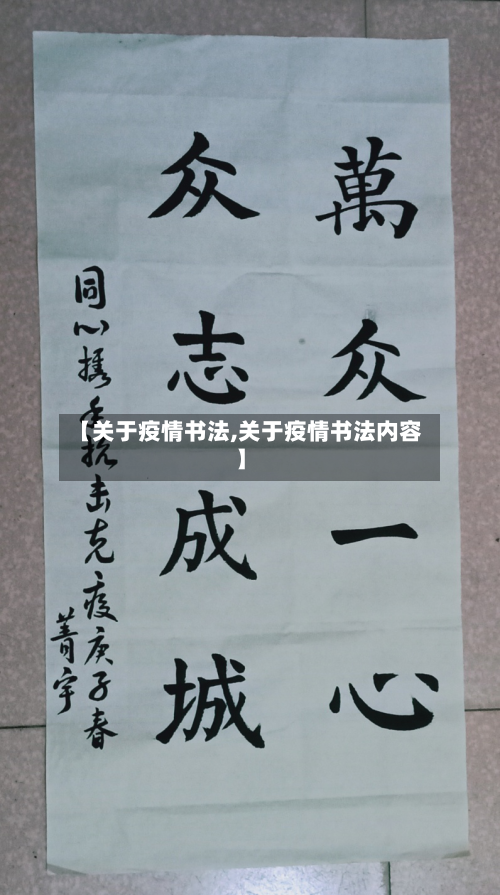 萬众一心
众志成城
同心携手抗击克疫庚子春
菁宇
【关于疫情书法,关于疫情书法内容
】